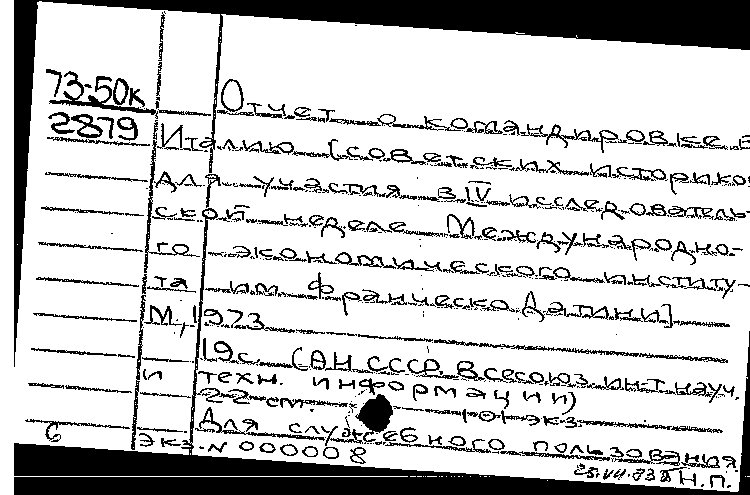 73-50к
2879
Отчет о командировке в
Италию [советских историков
для участия в IV исследователь-
ской неделе Международно-
го экономического институ-
та им Франческо Датини]
М., 1973
19с. (АН СССР. Всесоюз. ин-т науч.
и техн. информации)
22 см. 101 экз.
Для служебного пользования
6 экз. N 000008
Н.П.